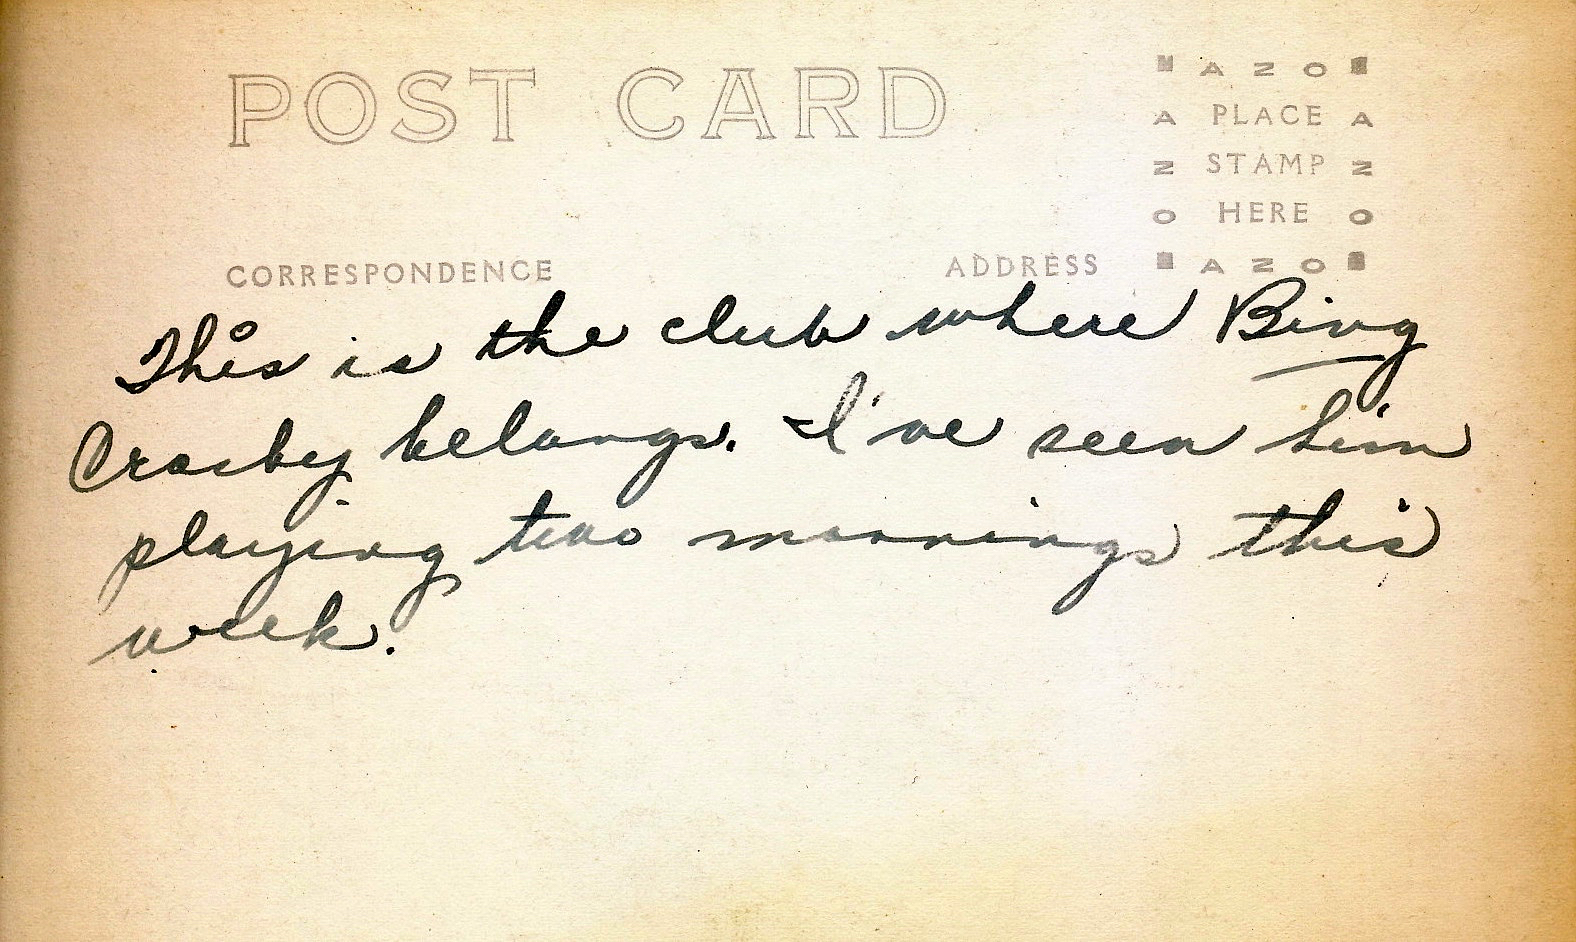 POST CARD
AZO
A PLACE A
N STAMP N
O HERE O
AZO
CORRESPONDENCE ADDRESS
This is the club where Bing
Crosby belongs. I've seen him
playing two mornings this
week.